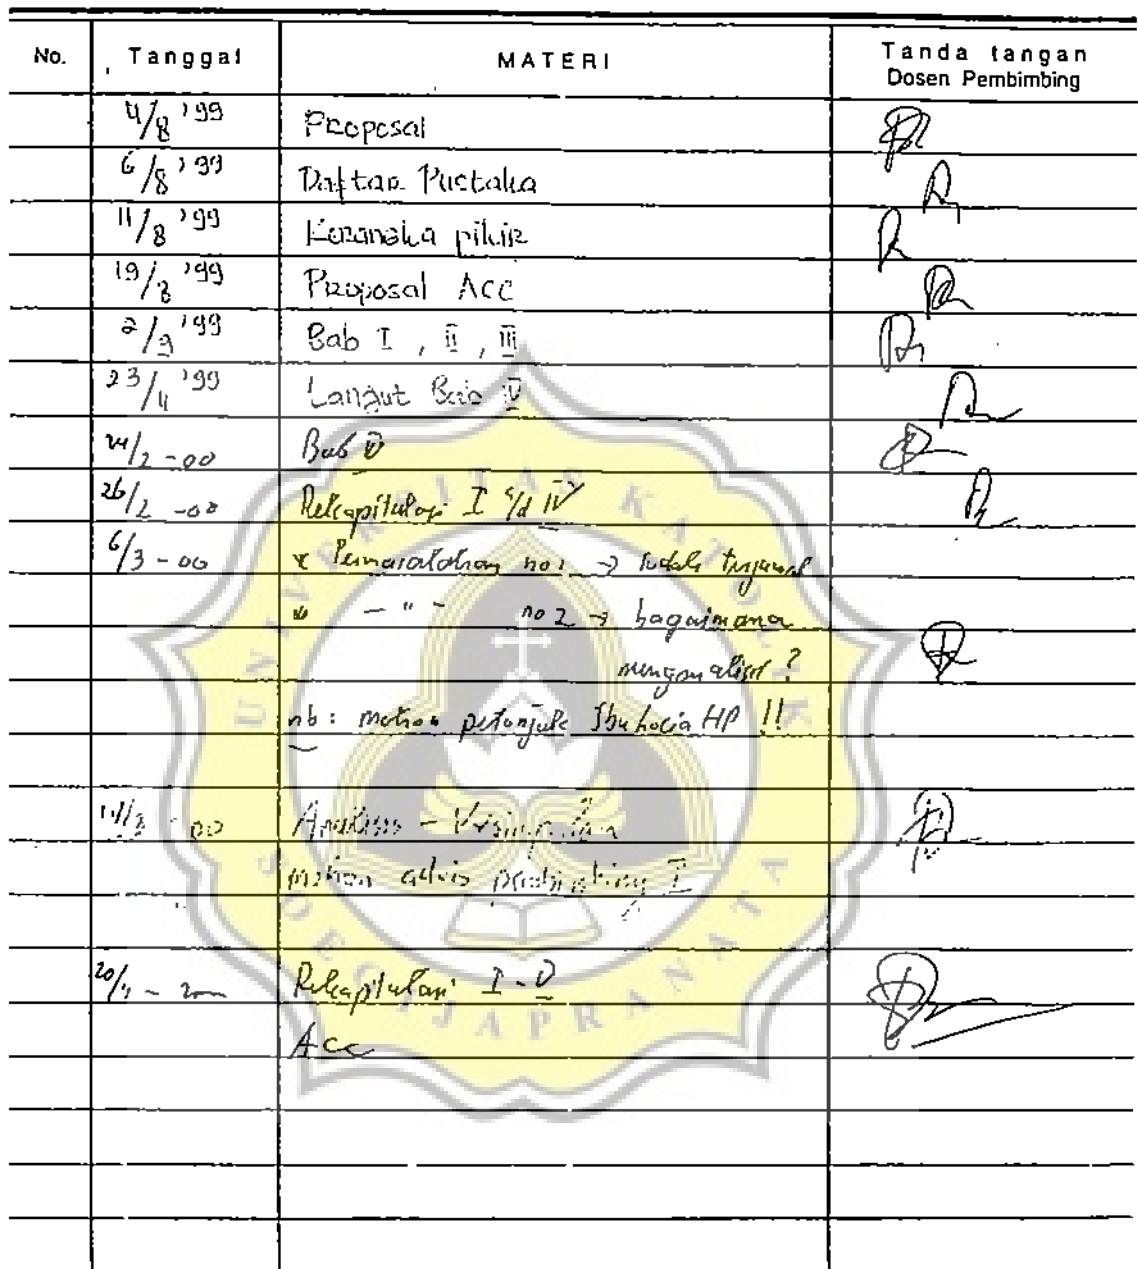 No. Tanggal MATERI Tanda tangan
Dosen Pembimbing
4/8 '99 Proposal
6/8 '99 Daftar Pustaka
11/8 '99 Kerangka pikir
19/8 '99 Proposal Acc
2/9 '99 Bab I, II, III
23/11 '99 Lanjut Bab IV
24/2 -00 Bab IV
26/2 -00 Rekapitulasi I s/d IV
6/3 - 00 * Permasalahan no 1 → sudah terjawab
* - " - no 2 → bagaimana
menganalisis?
nb: mohon petunjuk Ibu HP !!
00 Analisis - Kesimpulan
mohon advis pembimbing I
20/4 - 2000 Rekapitulasi I - V
Acc
UNIVERSITAS KATOLIK
SOEGIJAPRANATA